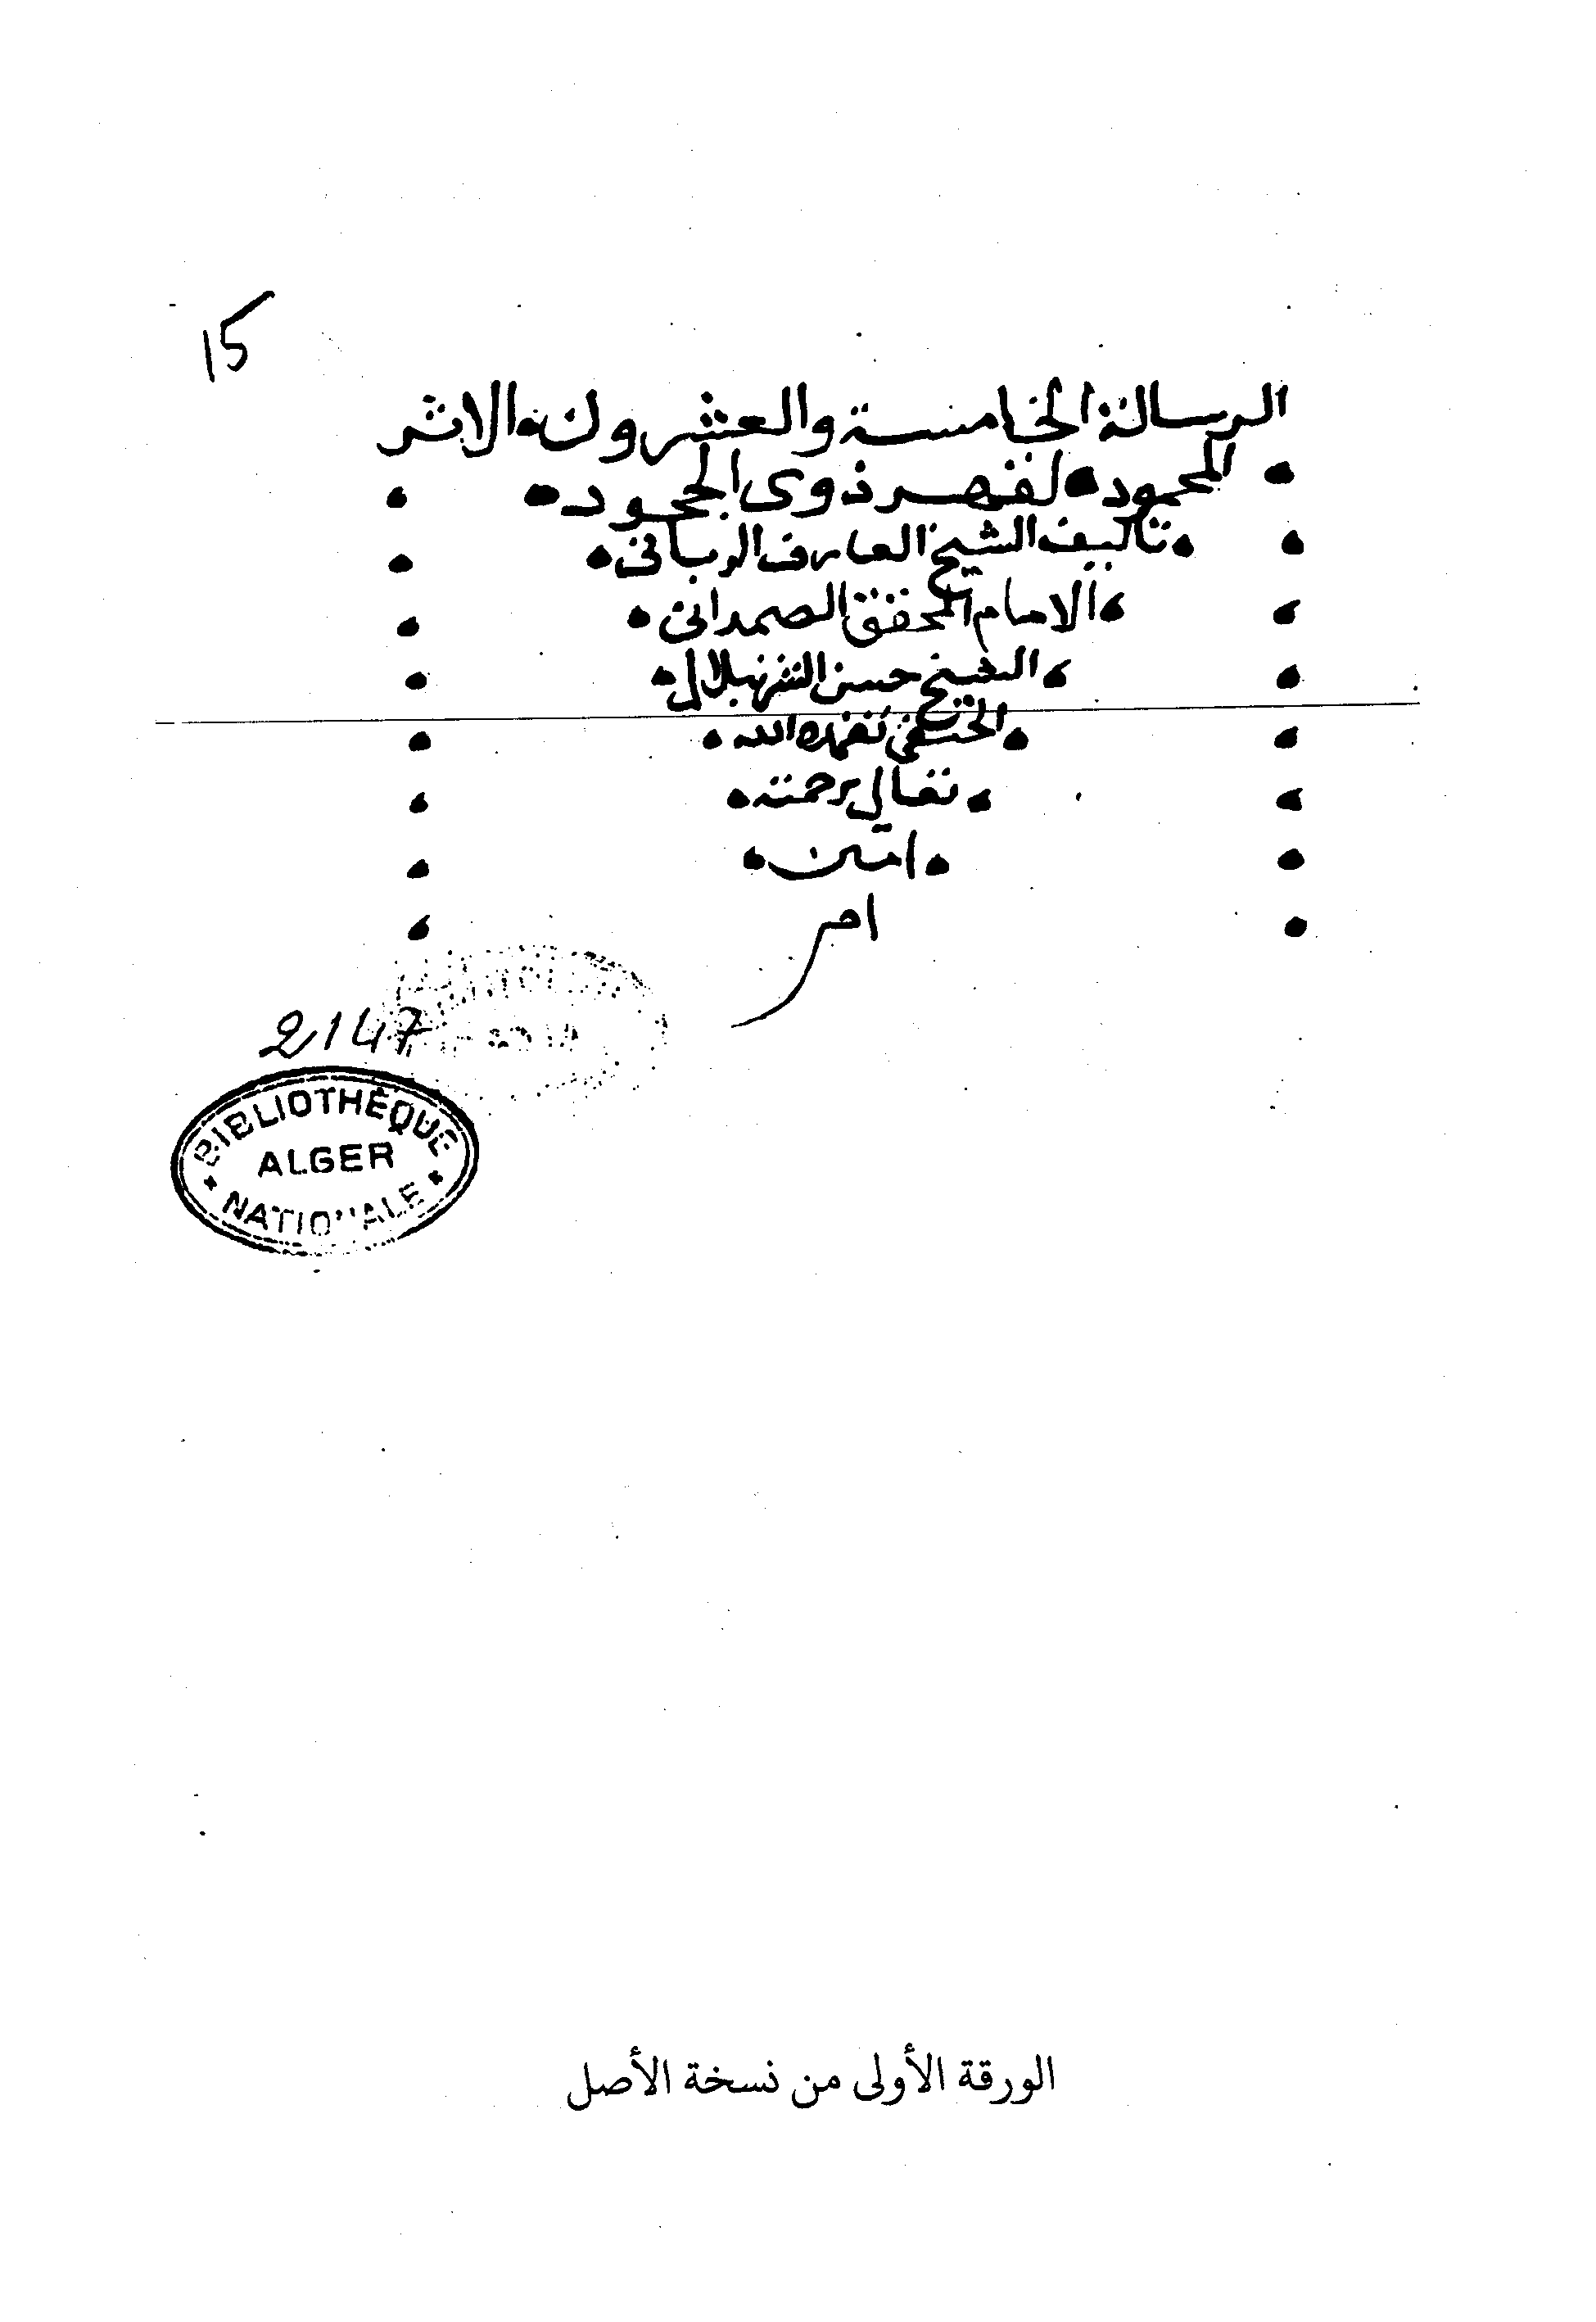 15
الرسالة الخامسة والعشرون الاثر
المحمود لقهر ذوى الجحود
تاليف الشيخ العارف الربانى
الامام المحقق الصمدانى
الشيخ حسن الشرنبلالى
الحنفى تغمده الله
تعالى برحمته
امين
ام
2147
BIBLIOTHÈQUE
ALGER
NATIONALE
الورقة الأولى من نسخة الأصل